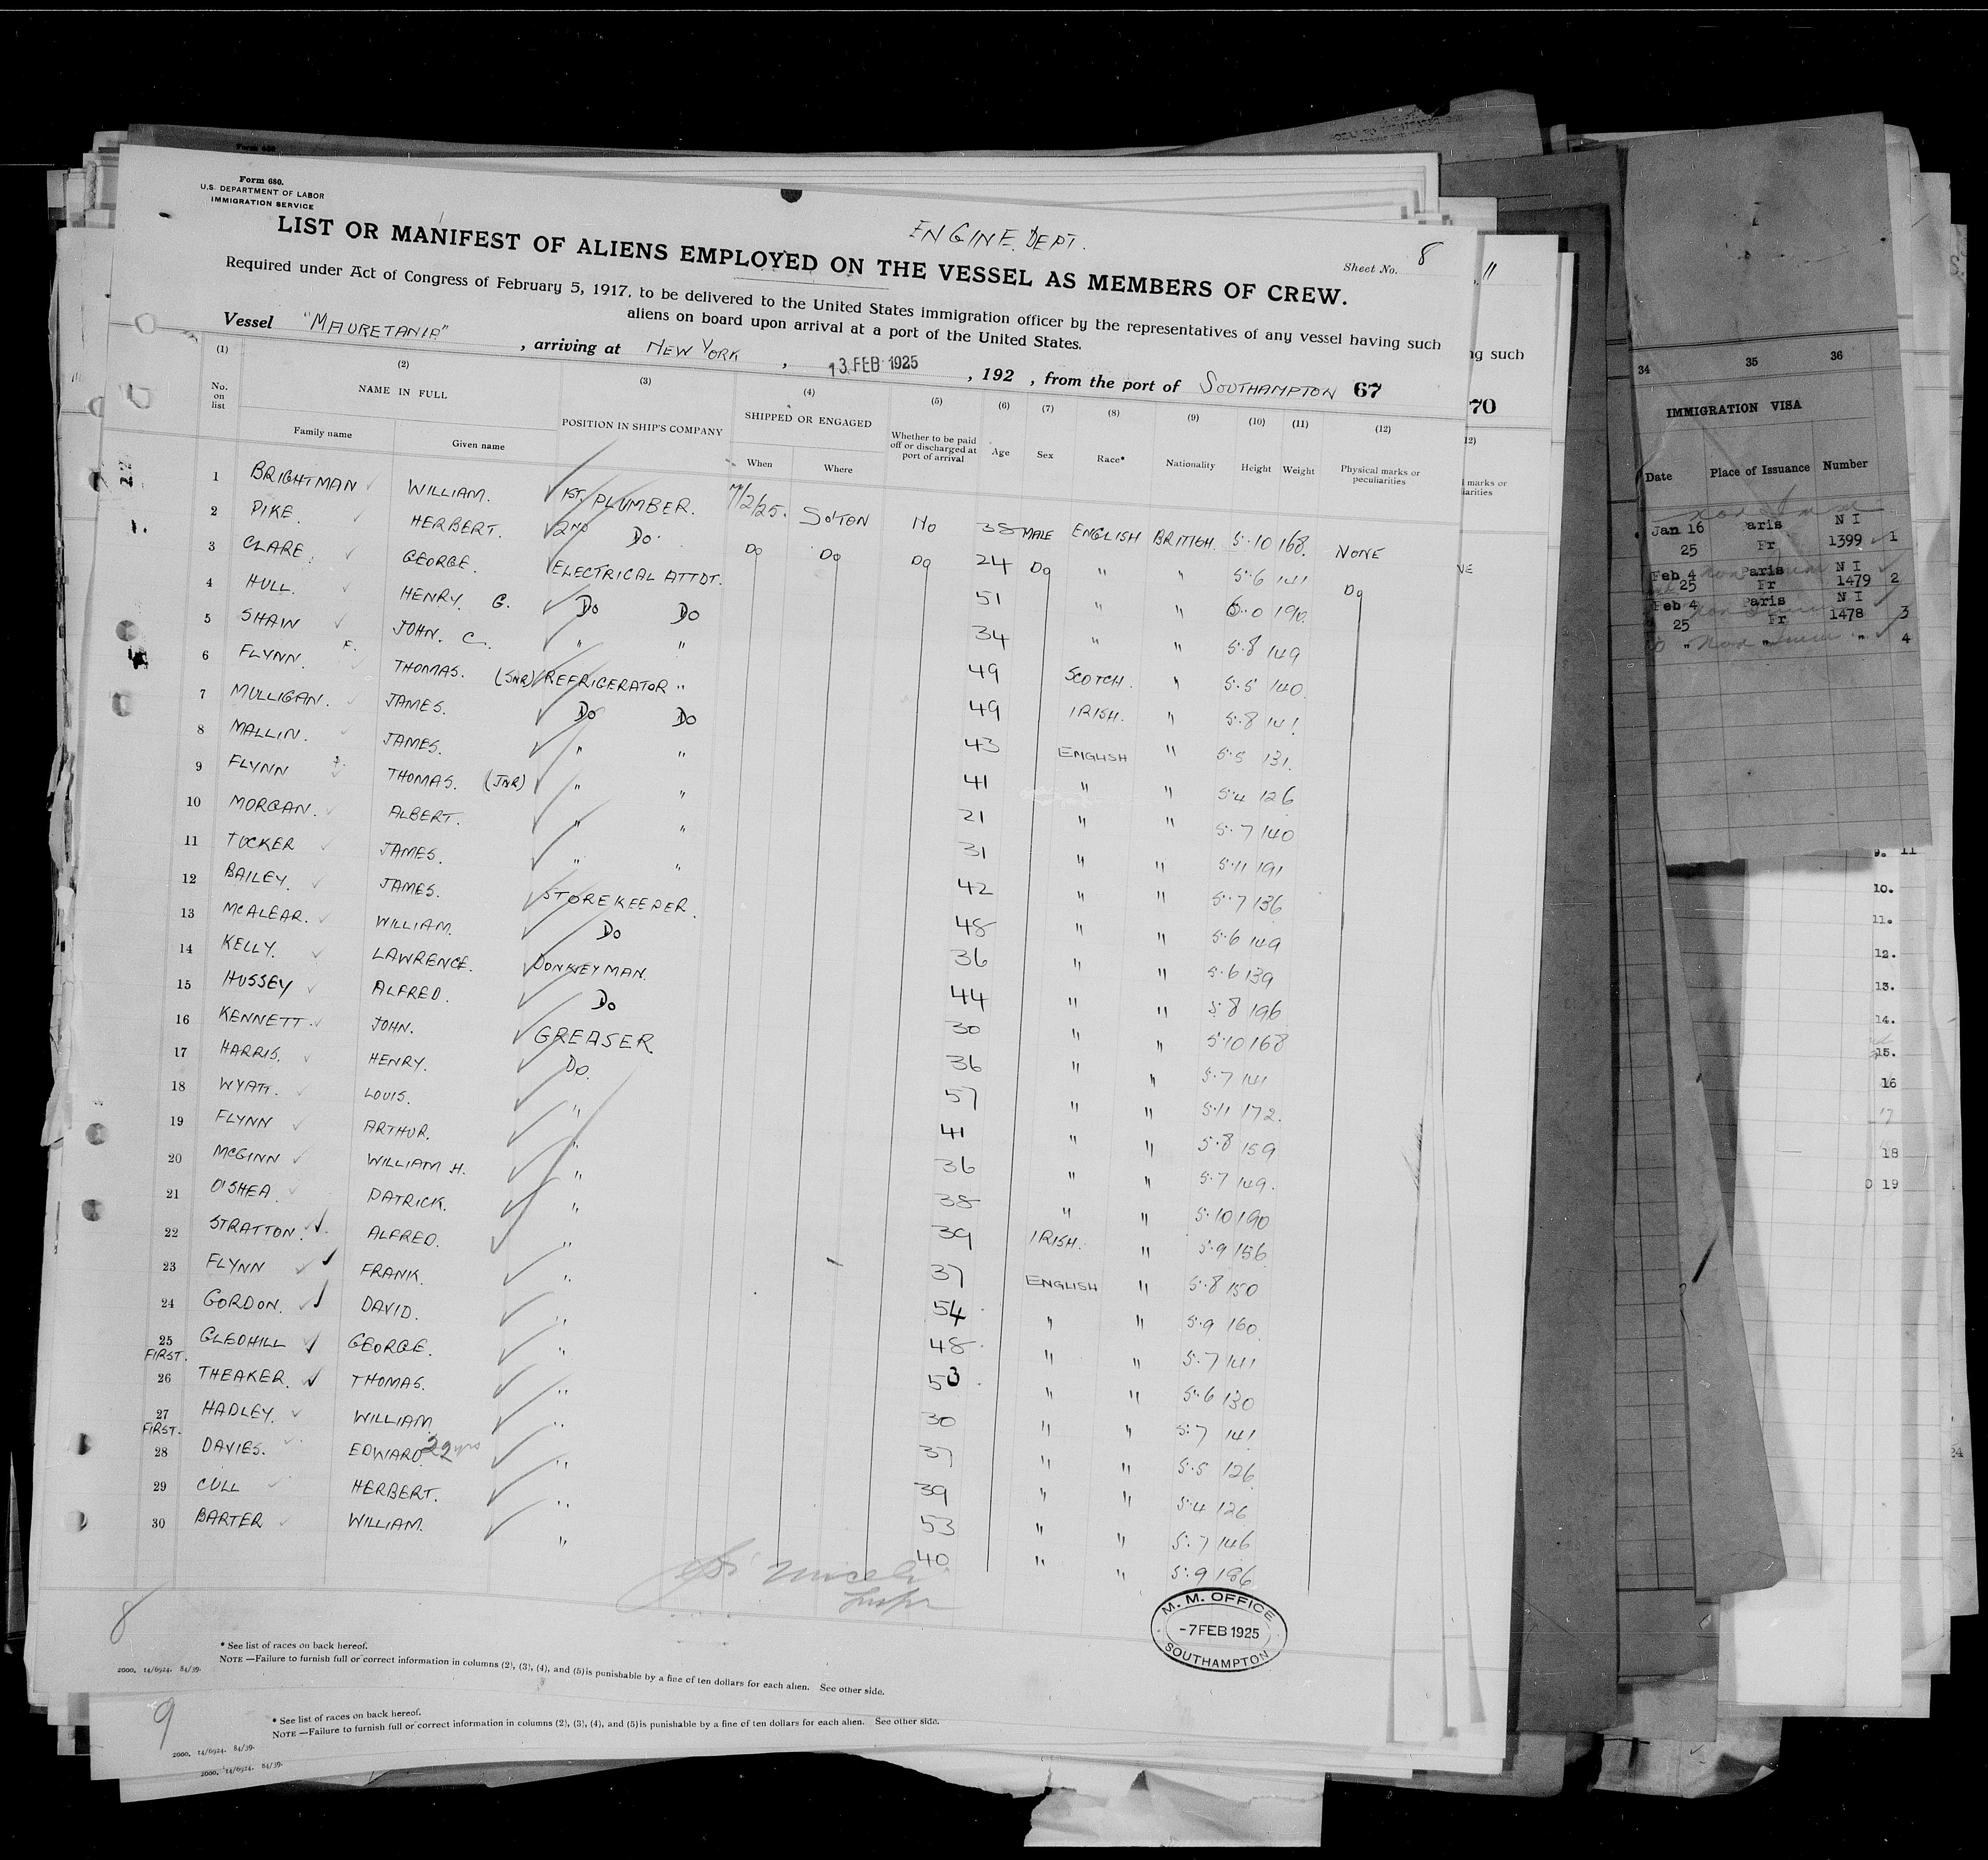 Form 680.
U.S. DEPARTMENT OF LABOR
IMMIGRATION SERVICE
ENGINE DEPT.
LIST OR MANIFEST OF ALIENS EMPLOYED ON THE VESSEL AS MEMBERS OF CREW.
Sheet No. 8
Required under Act of Congress of February 5, 1917, to be delivered to the United States immigration officer by the representatives of any vessel having such
aliens on board upon arrival at a port of the United States.
Vessel "MAURETANIA", arriving at NEW YORK, 13 FEB 1925, 192 , from the port of SOUTHAMPTON 67
(1) (2) (3) (4) (5) (6) (7) (8) (9) (10) (11) (12)
No. on list NAME IN FULL POSITION IN SHIP'S COMPANY SHIPPED OR ENGAGED Whether to be paid off or discharged at port of arrival Age Sex Race* Nationality Height Weight Physical marks or peculiarities
Family name Given name When Where
1 BRIGHTMAN WILLIAM. 1ST. PLUMBER. 7/2/25. SO'TON NO 38 MALE ENGLISH BRITISH. 5.10 168. NONE
2 PIKE. HERBERT. 2ND DO. DO DO DO 24 DO " " 5.6 141 DO
3 CLARE. GEORGE. ELECTRICAL ATTDT. 51 " " 6.0 190.
4 HULL. HENRY. G. DO DO 34 " " 5.8 149
5 SHAIN JOHN. C. " " 49 SCOTCH. " 5.5 140.
6 FLYNN. F. THOMAS. (SNR) REFRIGERATOR " 49 IRISH. " 5.8 141
7 MULLIGAN. JAMES. DO DO 43 ENGLISH " 5.5 131.
8 MALLIN. JAMES. " " 41 " " 5.4 126
9 FLYNN F. THOMAS. (JNR) " " 21 " " 5.7 140
10 MORGAN. ALBERT. " " 31 " " 5.11 191
11 TUCKER JAMES. " " 42 " " 5.7 136
12 BAILEY. JAMES. STOREKEEPER. 48 " " 5.6 149
13 McALEAR. WILLIAM. DO 36 " " 5.6 139
14 KELLY. LAWRENCE. DONKEYMAN. 44 " " 5.8 196
15 HUSSEY ALFRED. DO 30 " " 5.10 168
16 KENNETT. JOHN. GREASER. 36 " " 5.7 141
17 HARRIS. HENRY. DO. 57 " " 5.11 172.
18 WYATT. LOUIS. " 41 " " 5.8 159
19 FLYNN ARTHUR. " 36 " " 5.7 149.
20 McGINN WILLIAM H. " 38 " " 5.10 190
21 O'SHEA. PATRICK. " 39 IRISH. " 5.9 156
22 STRATTON. ALFRED. " 37 ENGLISH " 5.8 150
23 FLYNN FRANK. " 54 " " 5.9 160.
24 GORDON. DAVID. " 48 " " 5.7 141
25 FIRST. GLEDHILL GEORGE. " 50 " " 5.6 130
26 THEAKER. THOMAS. " 30 " " 5.7 141
27 FIRST. HADLEY. WILLIAM " 37 " " 5.5 126
28 DAVIES. EDWARD. 22 yrs " 39 " " 5.4 126
29 CULL HERBERT. " 53 " " 5.7 146
30 BARTER WILLIAM. " 40 " " 5.9 186
M. M. OFFICE
-7 FEB 1925
SOUTHAMPTON
8
* See list of races on back hereof.
NOTE —Failure to furnish full or correct information in columns (2), (3), (4), and (5) is punishable by a fine of ten dollars for each alien. See other side.
2000. 14/6924. 84/39.
9
* See list of races on back hereof.
NOTE —Failure to furnish full or correct information in columns (2), (3), (4), and (5) is punishable by a fine of ten dollars for each alien. See other side.
2000. 14/6924. 84/39.
2000. 14/6924. 84/39.
ng such
70
12)
marks or
arities
34 35 36
IMMIGRATION VISA
Date Place of Issuance Number
Jan 16 25 Paris Fr N I 1399 1
Feb 4 25 Paris Fr N I 1479 2
Feb 4 25 Paris Fr N I 1478 3
" " " 4
9. 11
10.
11.
12.
13.
14.
15.
16
17
18
0 19
24